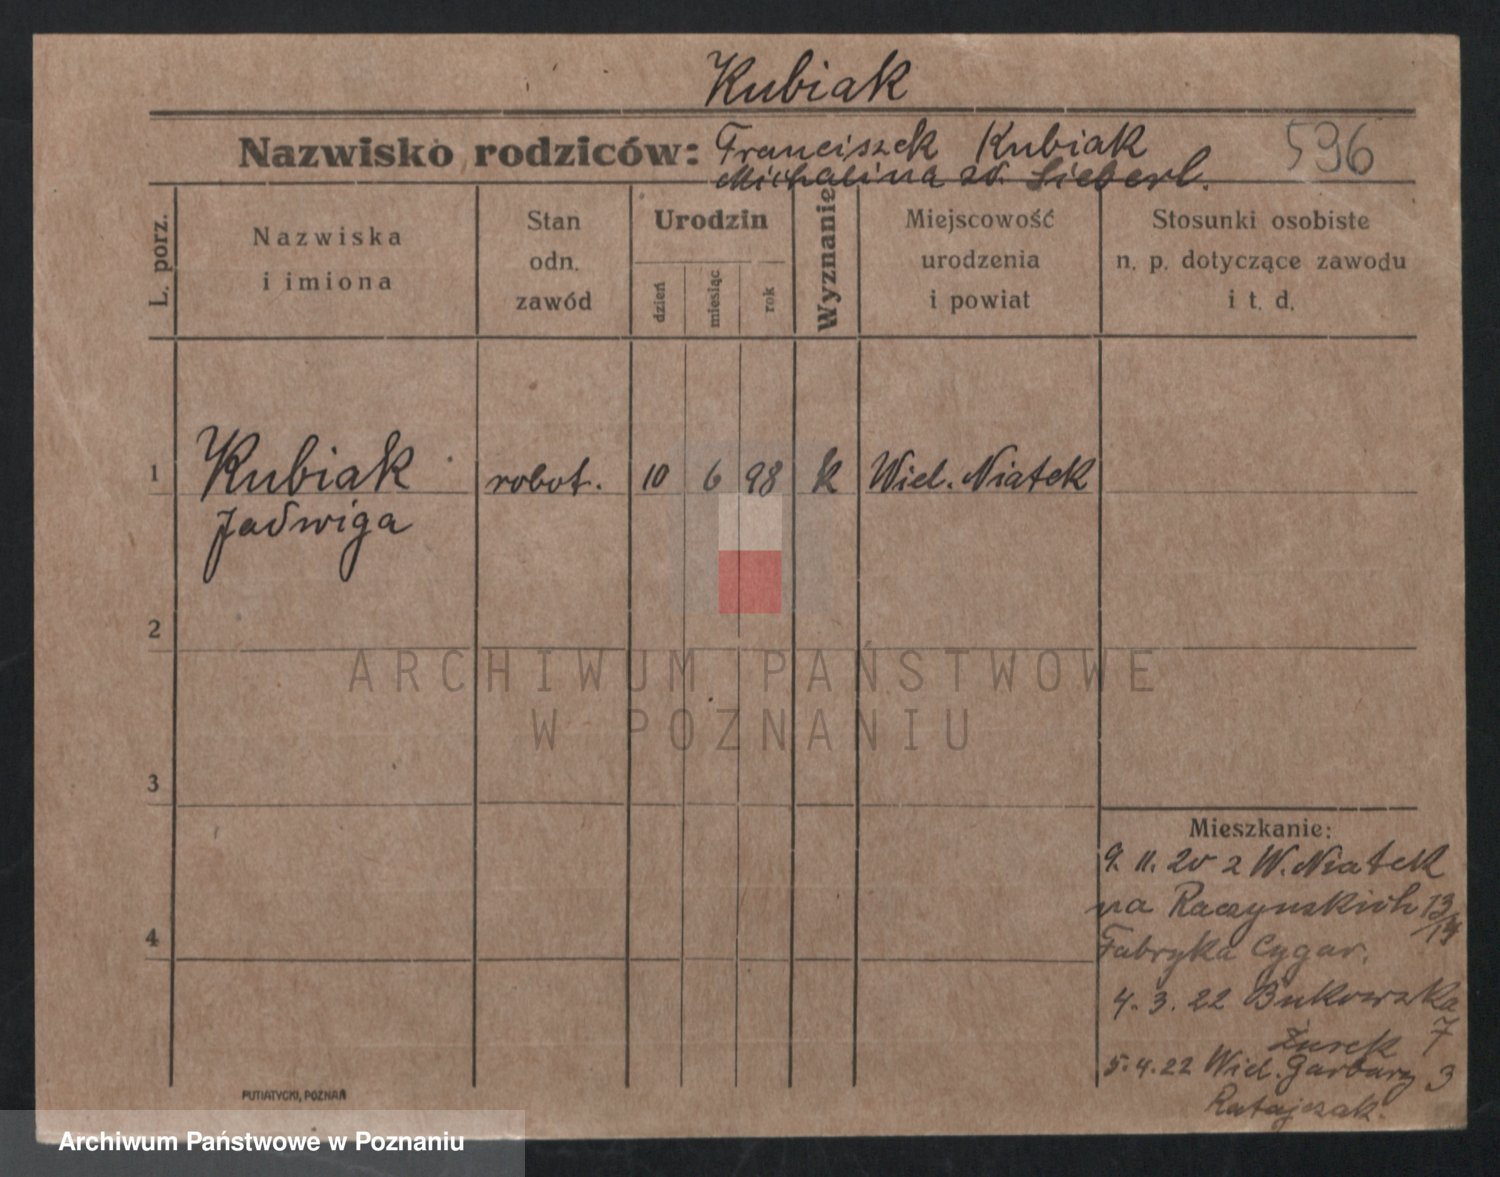 Kubiak
Nazwisko rodziców: Franciszek Kubiak 596
Michalina zd. Lieberl.
L. porz.
Nazwiska
i imiona
Stan
odn.
zawód
Urodzin
dzień
miesiąc
rok
Wyznanie
Miejscowość
urodzenia
i powiat
Stosunki osobiste
n. p. dotyczące zawodu
i t. d.
1 Kubiak robot. 10 6 98 k Wiel. Niatek
Jadwiga
2
ARCHIWUM PAŃSTWOWE
W POZNANIU
3
Mieszkanie:
9. 11. 20 z W. Niatek
na Raczynskich 13/14
4
Fabryka Cygar.
4. 3. 22 Bukowska 7
Żurek
5. 4. 22 Wiel. Garbary 3
Ratajczak.
PUTIATYCKI, POZNAŃ
Archiwum Państwowe w Poznaniu